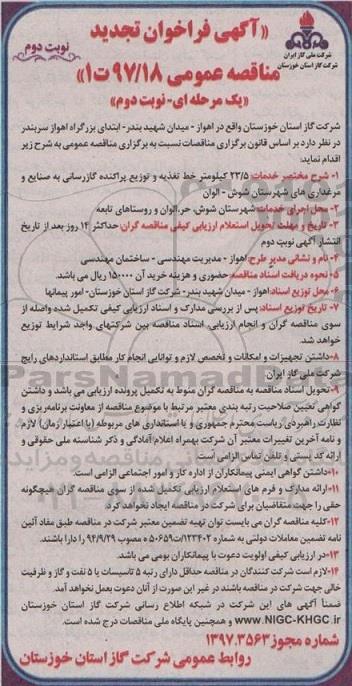 «آگهی فراخوان تجدید
نوبت دوم
شرکت ملی گاز ایران
شرکت گاز استان خوزستان
مناقصه عمومی ۹۷/۱۸ ت۱»
«یک مرحله ای- نوبت دوم»
شرکت گاز استان خوزستان واقع در اهواز - میدان شهید بندر- ابتدای بزرگراه اهواز سربندر
در نظر دارد بر اساس قانون برگزاری مناقصات نسبت به برگزاری مناقصه عمومی به شرح زیر
اقدام نماید:
۱- شرح مختصر خدمات: ۲۳/۵ کیلومتر خط تغذیه و توزیع پراکنده گازرسانی به صنایع و
مرغداری های شهرستان شوش - الوان
۲- محل اجرای خدمات: شهرستان شوش، حر، الوان و روستاهای تابعه
۳- تاریخ و مهلت تحویل استعلام ارزیابی کیفی مناقصه گران: حداکثر ۱۴ روز بعد از تاریخ
انتشار آگهی نوبت دوم
۴- نام و نشانی مدیر طرح: اهواز - مدیریت مهندسی - ساختمان مهندسی
۵- نحوه دریافت اسناد مناقصه: حضوری و هزینه خرید آن ۱۵۰۰۰۰ ریال می باشد.
۶- محل توزیع اسناد: اهواز - میدان شهید بندر- شرکت گاز استان خوزستان- امور پیمانها
۷- تاریخ توزیع اسناد: پس از بررسی مدارک و اسناد ارزیابی کیفی تکمیل شده واصله از
سوی مناقصه گران و انجام ارزیابی، اسناد مناقصه بین شرکتهای واجد شرایط توزیع
خواهد شد.
۸- داشتن تجهیزات و امکانات و تخصص لازم و توانایی انجام کار مطابق استانداردهای رایج
شرکت ملی گاز ایران
۹- تحویل اسناد مناقصه به مناقصه گران منوط به تکمیل پرونده ارزیابی می باشد و داشتن
گواهی تعیین صلاحیت رتبه بندی معتبر مرتبط با موضوع مناقصه از معاونت برنامه ریزی و
نظارت راهبردی ریاست محترم جمهوری و یا استانداری های مربوطه (با اعتبار زمان) لازم
و نامه آخرین تغییرات معتبر آن شرکت بهمراه اعلام آمادگی و ذکر شناسه ملی حقوقی و
ارائه کد پستی و تلفن تماس الزامی است.
۱۰- داشتن گواهی ایمنی پیمانکاران از اداره کار و امور اجتماعی الزامی است.
۱۱- ارائه مدارک و فرم های استعلام ارزیابی تکمیل شده از سوی مناقصه گران هیچگونه
حقی را جهت متقاضیان برای شرکت در مناقصه ایجاد نخواهد کرد.
۱۲- کلیه مناقصه گران می بایست توان تهیه تضمین معتبر شرکت در مناقصه طبق مفاد آئین
نامه تضمین معاملات دولتی به شماره ۱۲۳۴۰۲/ت۵۰۶۵۹ ه مصوب ۹۴/۹/۲۹ را دارا باشند.
۱۳- در ارزیابی کیفی اولویت دعوت با پیمانکاران بومی می باشد.
۱۴- لازم است شرکت کنندگان در مناقصه حداقل دارای رتبه ۵ تاسیسات یا ۵ نفت و گاز و ظرفیت
خالی جهت شرکت در مناقصه باشند در غیر این صورت از آنان دعوت بعمل نخواهد آمد.
ضمناً آگهی های این شرکت در شبکه اطلاع رسانی شرکت گاز استان خوزستان
WWW.NIGC-KHGC.IR و همچنین پایگاه ملی مناقصات درج شده است.
شماره مجوز ۱۳۹۷.۳۵۶۳
روابط عمومی شرکت گاز استان خوزستان